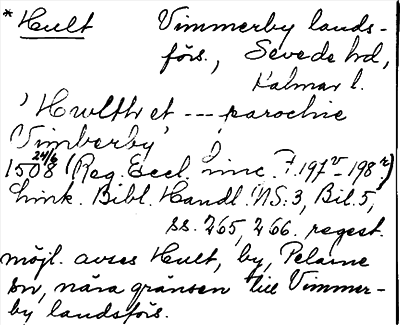 * Hult Vimmerby lands-
förs., Sevede hd,
Kalmar l.
'Hwlthet --- parochie
Vimberby'
24/6 1508 (Reg. Eccl. Linc. F. 197v-198r)
Link. Bibl. Handl. NS: 3, Bil. 5,
ss. 265, 266. regest.
möjl. avses Hult, by, Pelarne
sn, nära gränsen till Vimmer-
by landsförs.